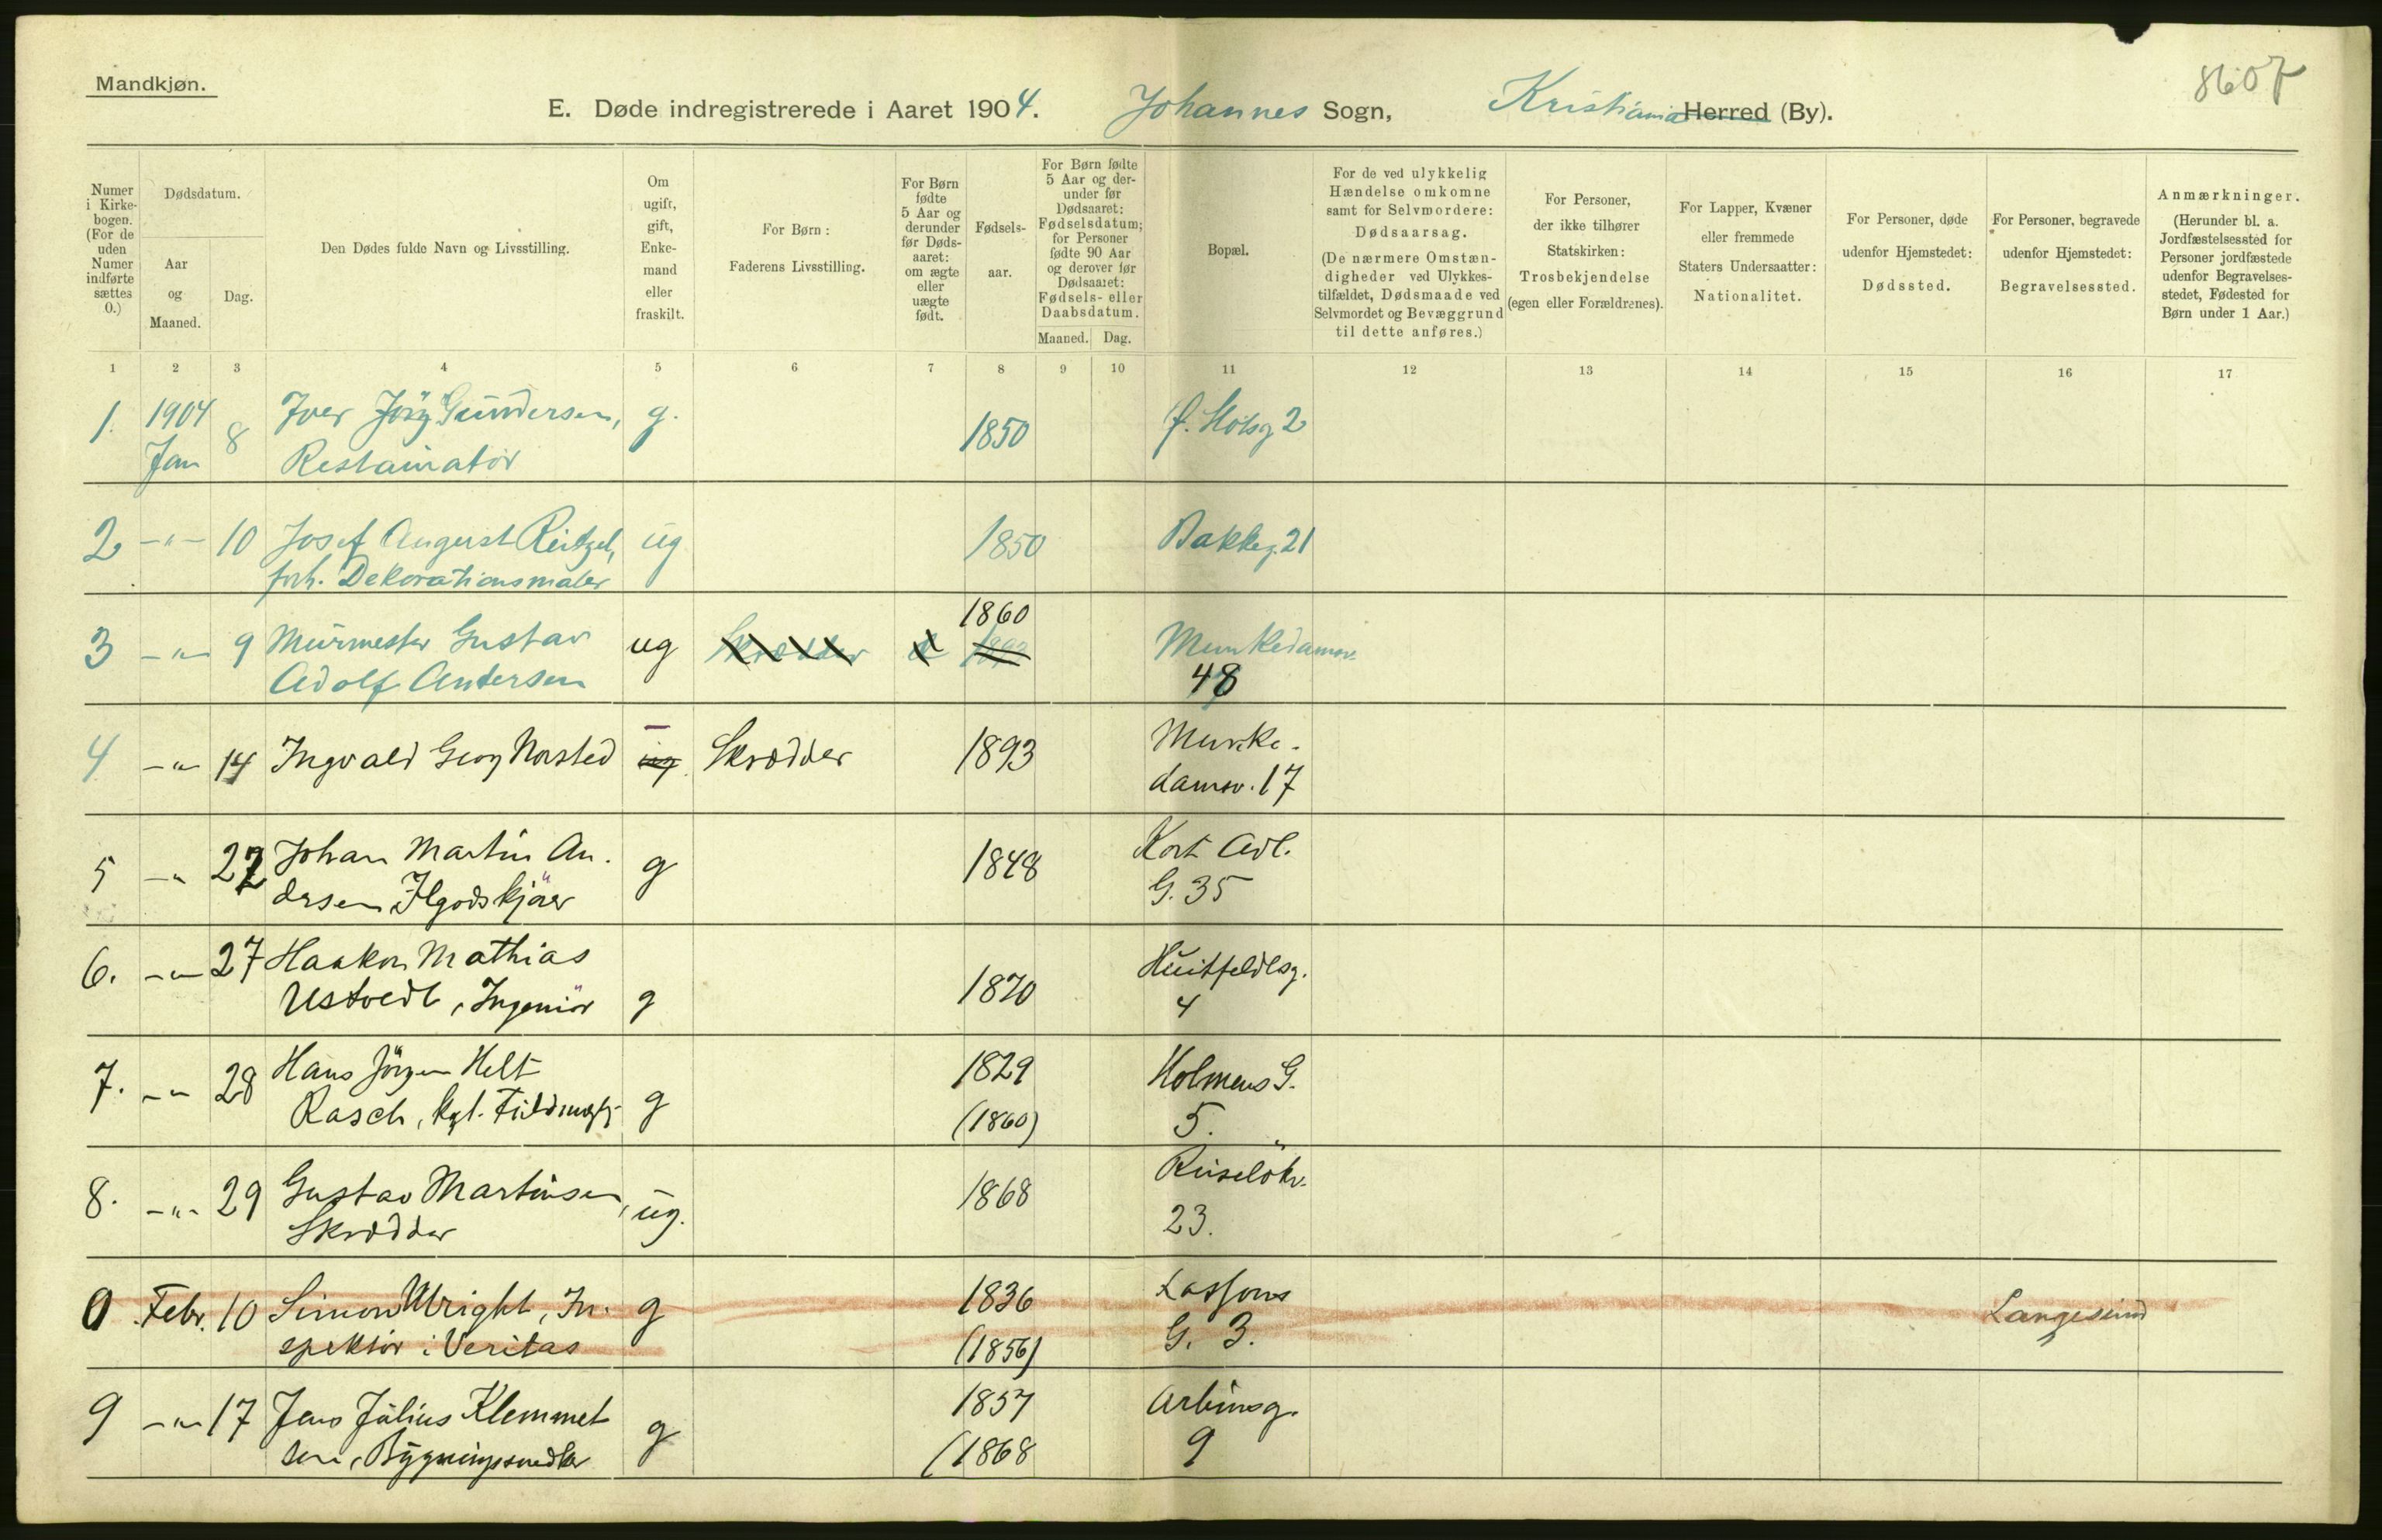 Mandkjøn.
8607
E. Døde indregistrerede i Aaret 1904. Johannes Sogn, Kristiania Herred (By).
Numer i Kirkebogen. (For de uden Numer indførte sættes 0.)
Dødsdatum.
Aar og Maaned.
Dag.
Den Dødes fulde Navn og Livsstilling.
Om ugift, gift, Enkemand eller fraskilt.
For Børn: Faderens Livsstilling.
For Børn fødte 5 Aar og derunder før Dødsaaret: om ægte eller uægte født.
Fødselsaar.
For Børn fødte 5 Aar og derunder før Dødsaaret: Fødselsdatum; for Personer fødte 90 Aar og derover før Dødsaaret: Fødsels- eller Daabsdatum.
Maaned.
Dag.
Bopæl.
For de ved ulykkelig Hændelse omkomne samt for Selvmordere: Dødsaarsag.
(De nærmere Omstændigheder ved Ulykkestilfældet, Dødsmaade ved Selvmordet og Bevæggrund til dette anføres.)
For Personer, der ikke tilhører Statskirken: Trosbekjendelse (egen eller Forældrenes).
For Lapper, Kvæner eller fremmede Staters Undersaatter: Nationalitet.
For Personer, døde udenfor Hjemstedet: Dødssted.
For Personer, begravede udenfor Hjemstedet: Begravelsessted.
Anmærkninger.
(Herunder bl. a. Jordfæstelsessted for Personer jordfæstede udenfor Begravelsesstedet, Fødested for Børn under 1 Aar.)
1 2 3 4 5 6 7 8 9 10 11 12 13 14 15 16 17
1. 1904 Jan 8 Iver Jørg Gundersen, g. 1850 f. Holsg 2
Restauratör
2 -"- 10 Josef August Reitzel, ug 1850 Bakkeg. 21
forh. Dekorationsmaler
3 -"- 9 Murmester Gustav ug Skrædder 1860 Munkedamsv.
Adolf Andersen 48
4 -"- 14 Ingvald Georg Norsted ug. Skrædder 1893 Munke-
damsv. 17
5 -"- 22 Johan Martin An- g 1848 Kort Adl.
dersen, Ilgodskjörer G. 35
6. -"- 27 Haakon Mathias 1870 Huitfeldtsg.
Ustvedt, Ingeniör g 4
7. -"- 28 Hans Jörgen Helt 1829 Holmens G.
Rasch, kgl. Fuldmægt. g (1860) 5.
8. -"- 29 Gustav Martinsen, ug. 1868 Ruselökv.
Skrædder 23.
0 Febr. 10 Simon Wright, In- g 1836 Lassons Langesund
spektör i Veritas (1856) G. 3.
9 -"- 17 Jens Julius Klemmet 1837 Arbinsg.
sen, Bygningssnedker g (1868 9